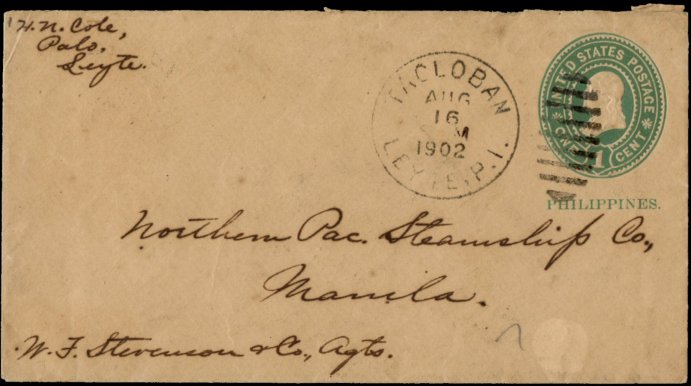 H. N. Cole,
Palo,
Leyte.
TACLOBAN
AUG
16
M
1902
LEYTE, P.I.
UNITED STATES POSTAGE
ONE CENT
PHILIPPINES.
Northern Pac. Steamship Co.,
Manila.
W. F. Stevenson & Co., Agts.